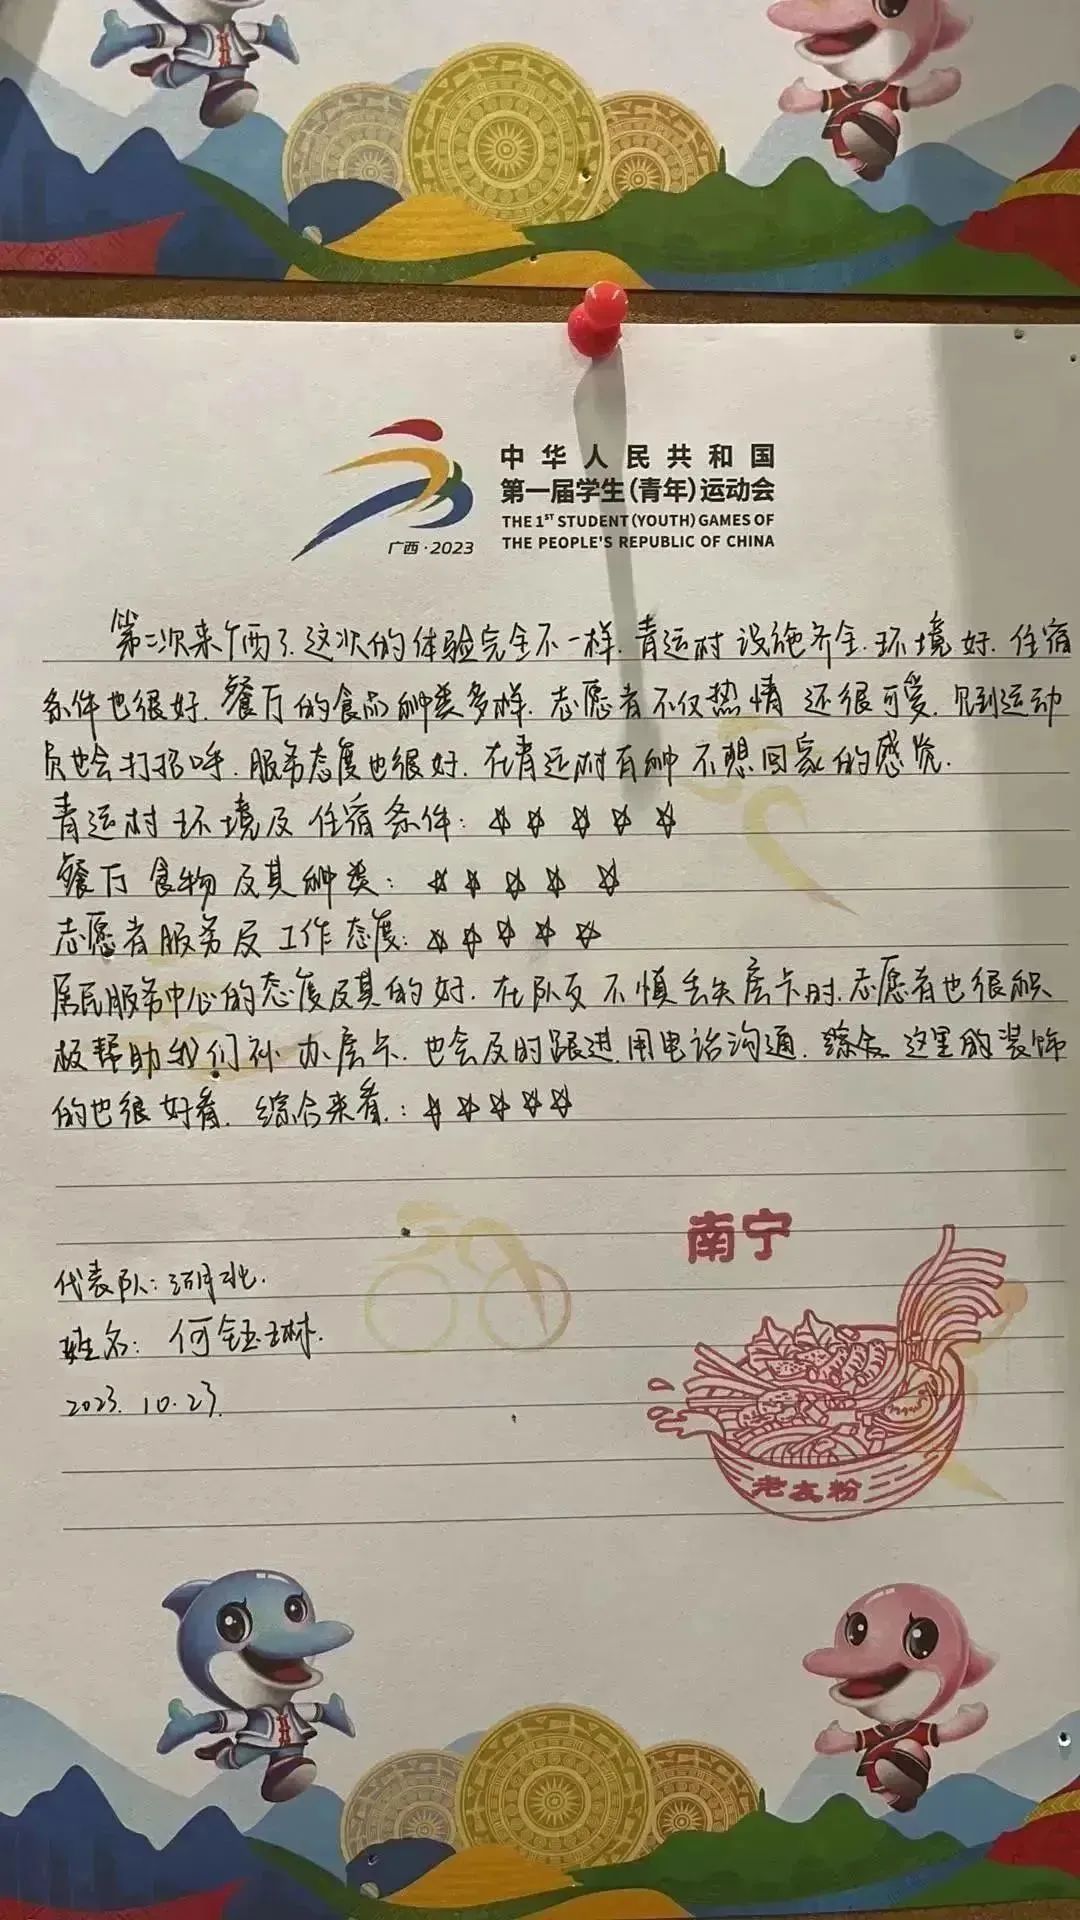 中华人民共和国
第一届学生(青年)运动会
THE 1ST STUDENT (YOUTH) GAMES OF
THE PEOPLE'S REPUBLIC OF CHINA
广西·2023
第二次来广西了.这次的体验完全不一样.青运村设施齐全.环境好.住宿
条件也很好.餐厅的食品种类多样.志愿者不仅热情还很可爱.见到运动
员也会打招呼.服务态度也很好.在青运村有种不想回家的感觉.
青运村环境及住宿条件:☆☆☆☆☆
餐厅食物及其种类:☆☆☆☆☆
志愿者服务及工作态度:☆☆☆☆☆
居民服务中心的态度及其的好.在队友不慎丢失房卡时.志愿者也很积
极帮助我们补办房卡.也会及时跟进.用电话沟通.综合这里的装饰
的也很好看.综合来看.:☆☆☆☆☆
代表队:河北.
姓名:何钰琳.
2023.10.23.
南宁
老友粉